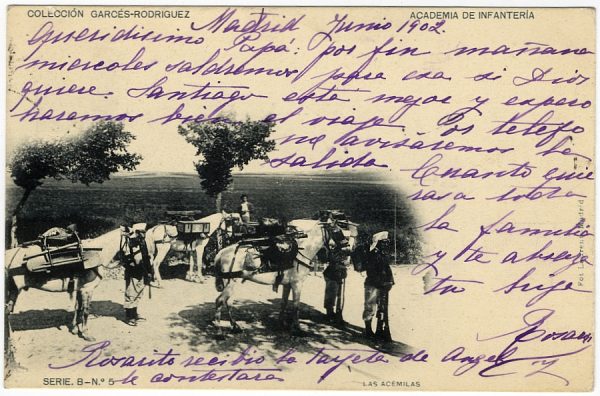 COLECCIÓN GARCÉS-RODRIGUEZ
ACADEMIA DE INFANTERÍA
Madrid Junio 1902
Queridisimo Papá: por fin mañana
miercoles saldremos para esa si Dios
quiere. Santiago está mejor y espero
haremos bien el viaje. Por telefo
no avisaremos la
salida. Cuanto quie
ras a toda
la familia
y te abraza
tu hija
Rosario
Rosarito recibio la tarjeta de Angel y
le contestara
SERIE. B-N.º 5
LAS ACÉMILAS